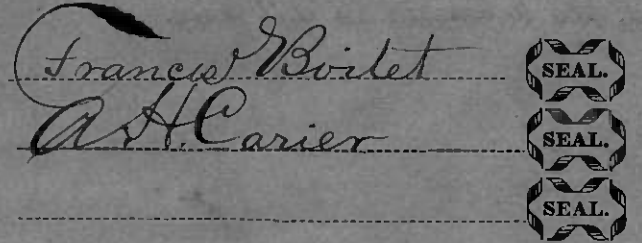 Francis Boitet SEAL.
A H. Carier SEAL.
SEAL.